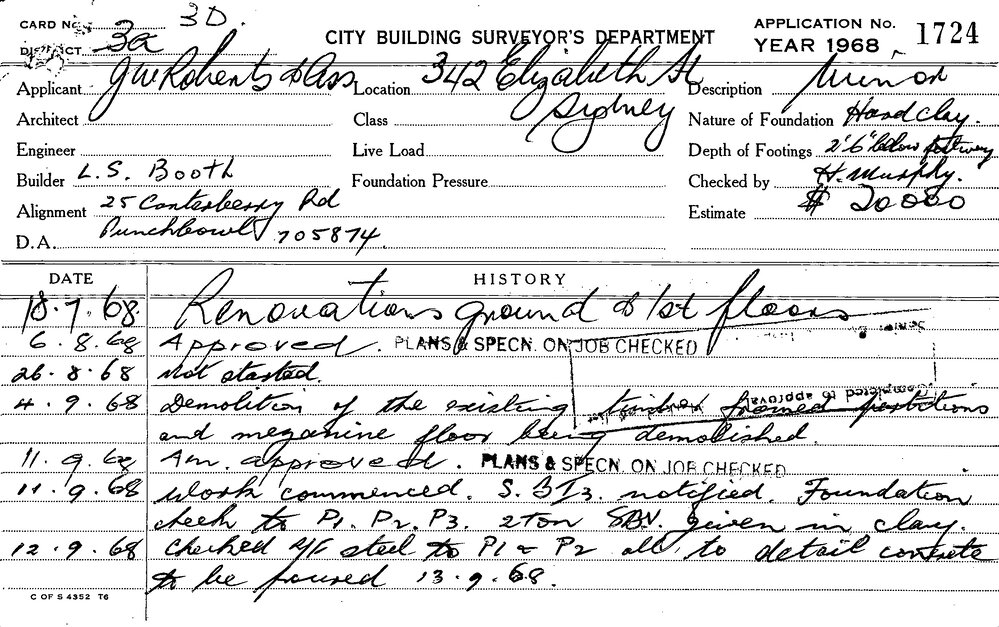 CARD No. 3D.
DISTRICT. 3a
CITY BUILDING SURVEYOR'S DEPARTMENT
APPLICATION No. 1724
YEAR 1968
Applicant J W Roberts & Ass. Location 342 Elizabeth St Description Minor
Architect Class Sydney Nature of Foundation Hard clay.
Engineer Live Load Depth of Footings 2'6" below footway
Builder L.S. Booth Foundation Pressure Checked by H. Murphy.
Alignment 25 Canterberry Rd Estimate $ 20000
D.A. Punchbowl 705874.
DATE HISTORY
18.7.68 Renovations ground & 1st floors
6.8.68 Approved. PLANS & SPECN. ON JOB CHECKED
26.8.68 Not started.
4.9.68 Demolition of the existing timber framed partitions
completed to approval
and mezanine floor being demolished.
11.9.68 Am. approved. PLANS & SPECN. ON JOB CHECKED
11.9.68 Work commenced. notified. Foundation
check to P1. P2. P3. 2 ton given in clay.
12.9.68 Checked steel to P1 & P2 all to detail concrete
to be poured 13.9.68.
C OF S 4352 T6